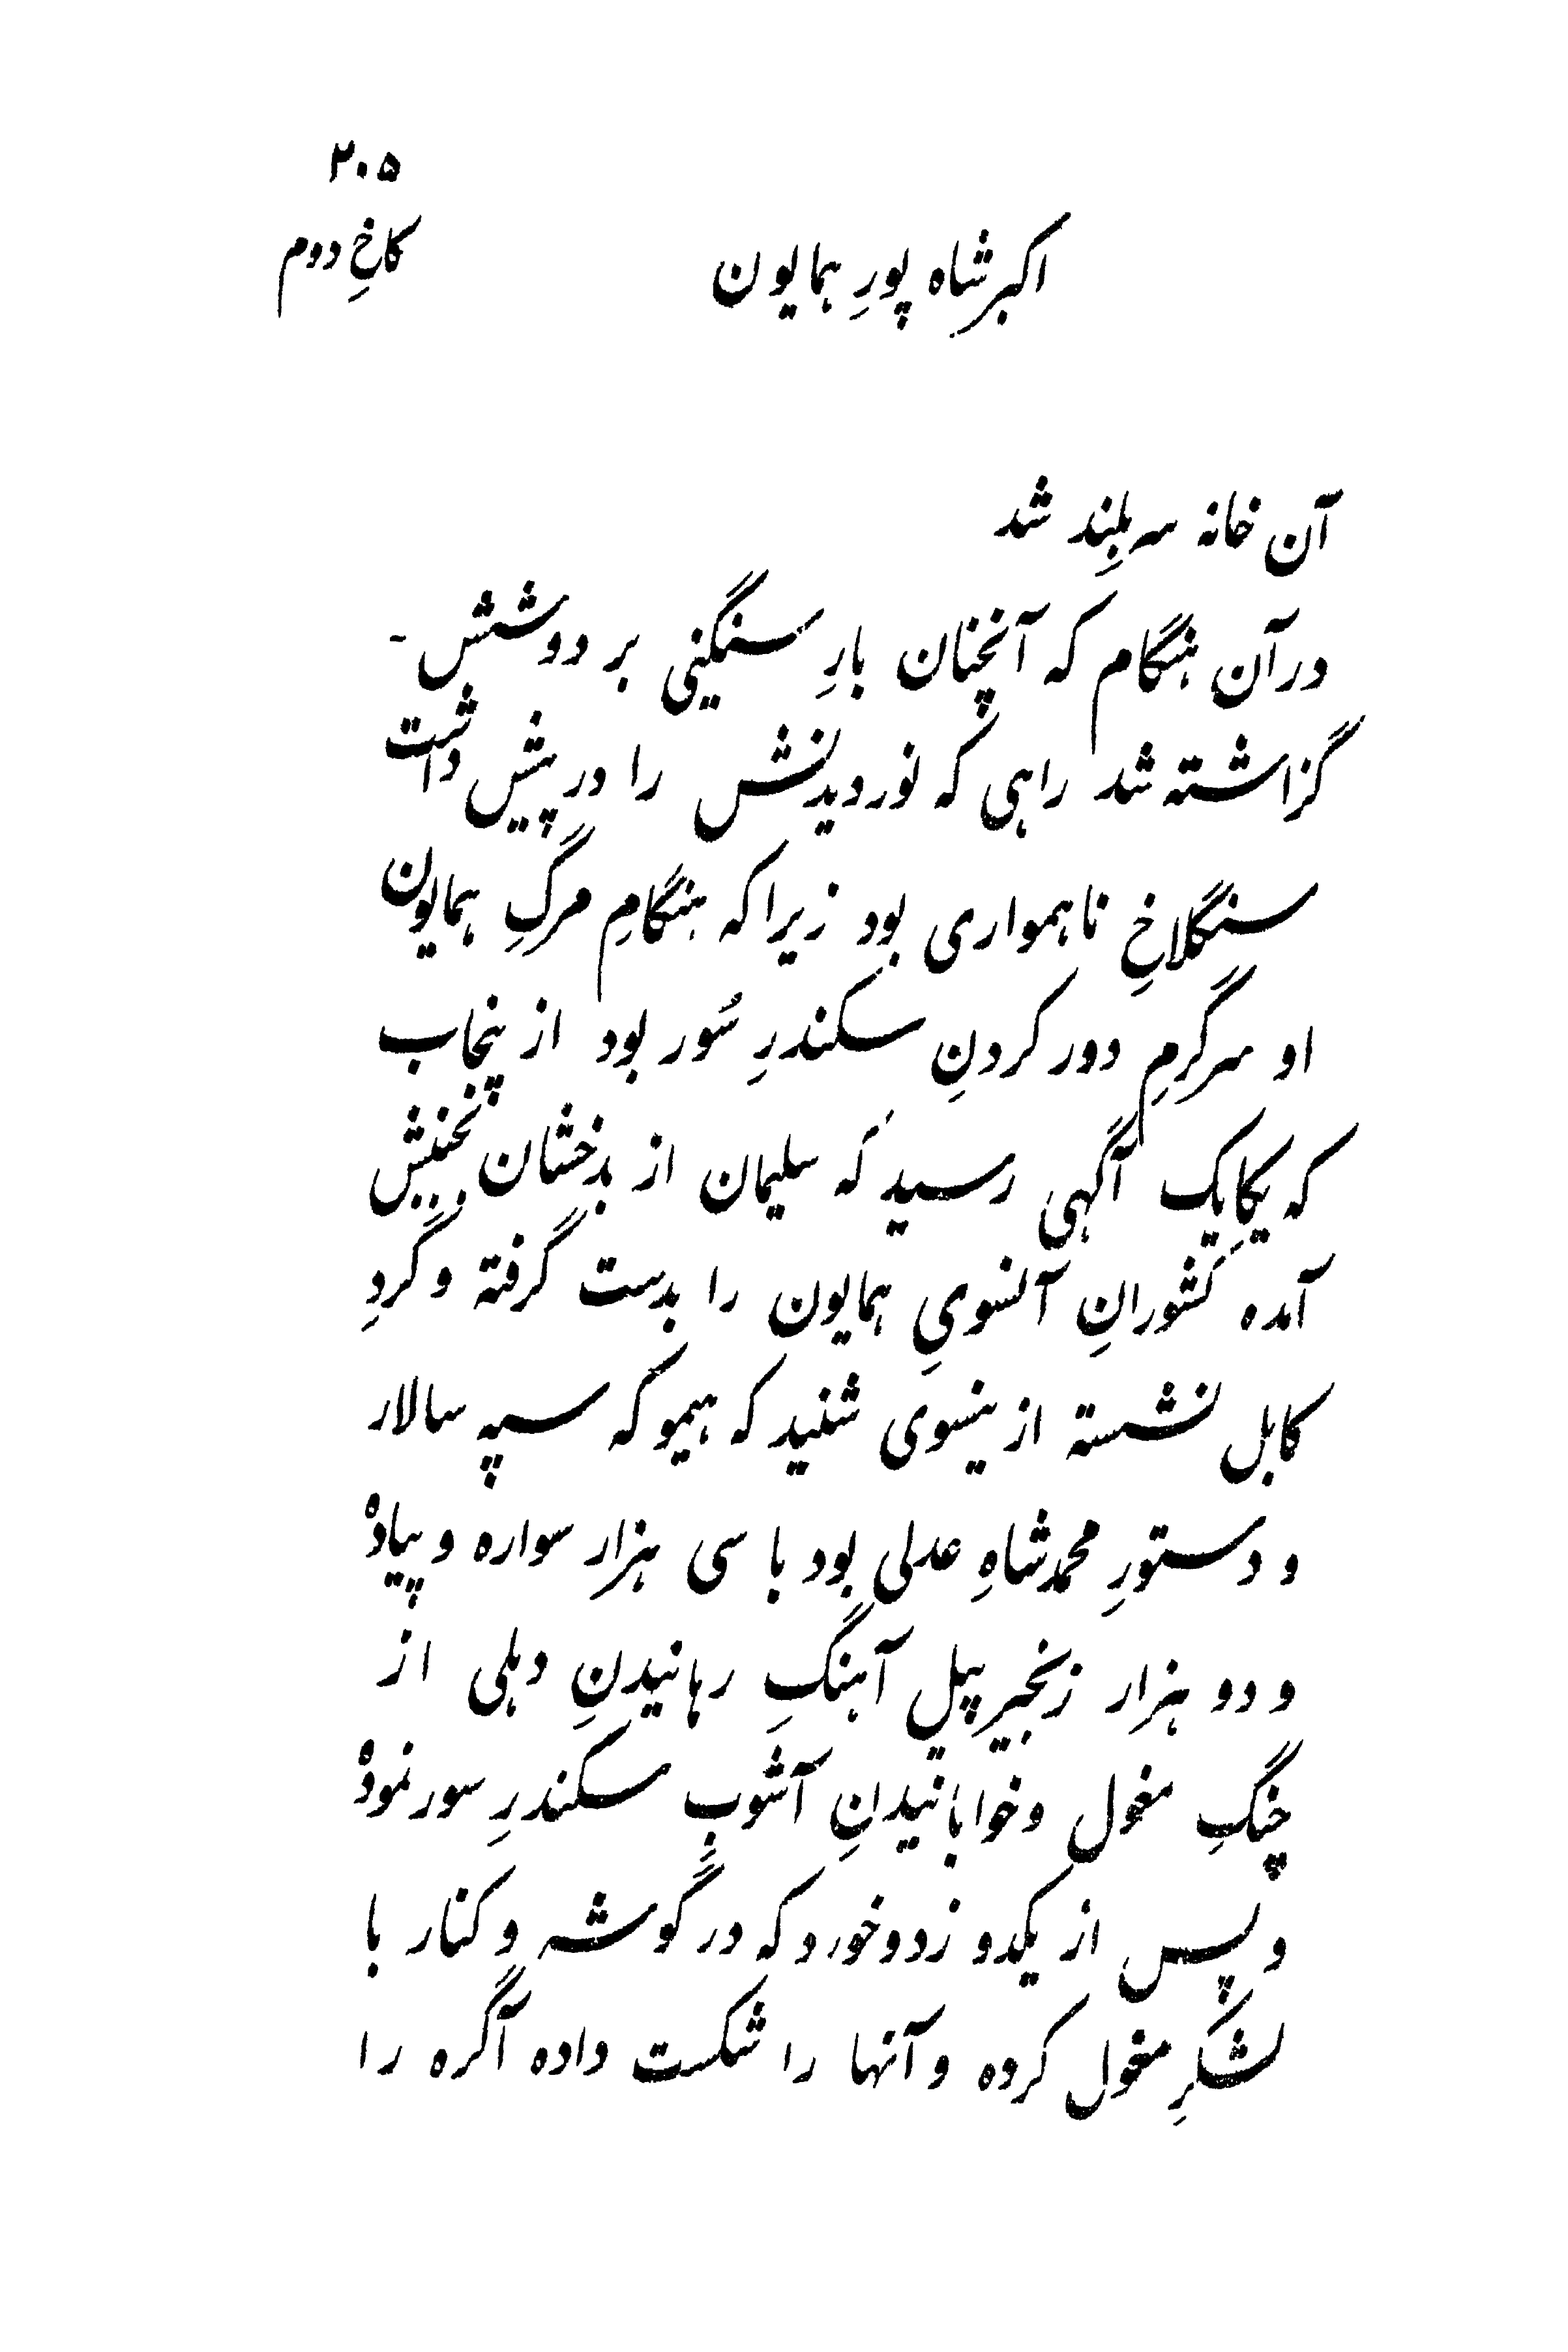 ۲۰۵
کاخِ دوم
اکبر شاه پورِ همایون
آن خانه سربلند شد
در آن هنگام که آنچنان بارِ سنگینی بر دوشش-
گزاشته شد راهی که نوردیدنش را در پیش داشت
سنگلاخِ ناهمواری بود زیرا که هنگامِ مرگِ همایون
او سرگرمِ دور کردنِ سکندرِ سُور بود از پنجاب
که یکایک آگهی رسید که سلیمان از بدخشان بجنبش
آمده کشورانِ آنسویِ همایون را بدست گرفته و گردِ
کابل نشسته ازینسوی شنید که هیمو که سپه سالار
و دستورِ محمد شاهِ عدلی بود با سی هزار سواره و پیاده
و دو هزار زنجیر پیل آهنگِ رهانیدنِ دهلی از
چنگِ مغول و خوابانیدنِ آشوبِ سکندرِ سور نموده
و پس از یکدو زد و خورد که در گوشه و کنار با
لشکرِ مغول کرده و آنها را شکست داده آگره را